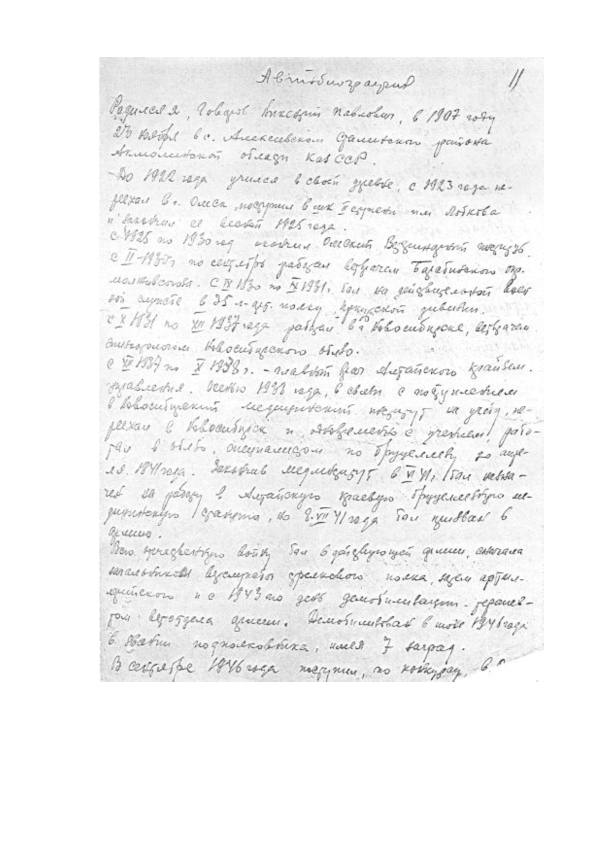 Автобиография
11
Родился я, Говоров Павлович, в 1907 году
ноября в с. Алексеевском района
Акмолинской области КазССР.
До 1922 года учился в своей деревне, с 1923 года пе-
реехал в г. Омск, поступил в II ступени им. Лобкова
и закончил её весной 1925 года.
С 1925 по 1930 год окончил Омский
по сентябрь работал ветврачом Барабинского
С IX 1930 по IX 1931г. был на действительной воен
ной службе в полку, дивизии.
С X 1931 по VII 1937 года работал в г. Новосибирске, ветврачом
Новосибирского облзо.
С VII 1937 по X 1938 г. - главный врач Алтайского
управления. Осенью 1938 года, в связи с поступлением
в Новосибирский медицинский институт на учебу, пе-
реехал в Новосибирск и одновременно с учением рабо-
тал в облзо, специалистом по бруцеллезу до апре-
ля 1941 года. Закончив мединститут в VI 41г. был назна-
чен на работу в Алтайскую краевую бруцеллезную ме-
дицинскую станцию, но 8.VII 41 года был призван в
армию.
Всю отечественную войну был в действующей армии, сначала
начальником стрелкового полка, затем артил-
лерийского и с 1943 по день демобилизации -
ветотдела армии. Демобилизован в 1946 года
в звании подполковника, имея 7 наград.
В сентябре 1946 года поступил, по конкурсу, в